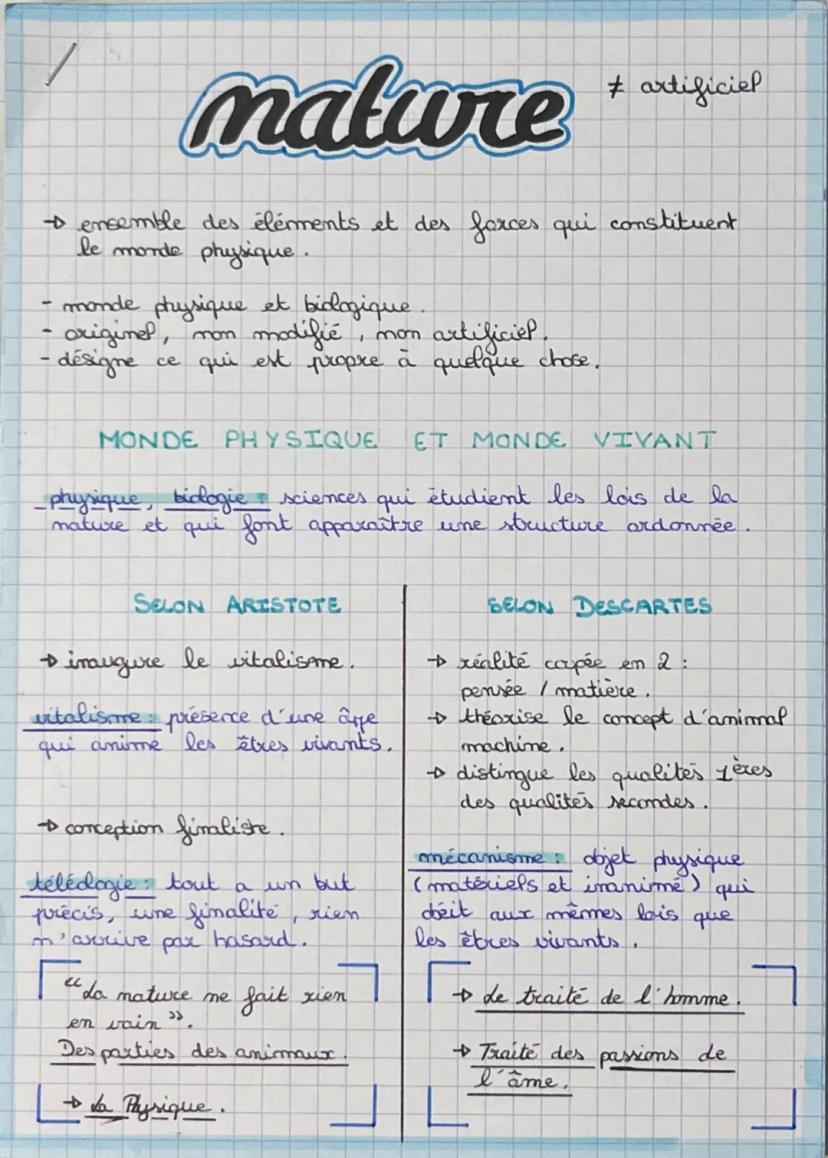 nature
≠ artificiel
→ ensemble des éléments et des forces qui constituent
le monde physique.
- monde physique et biologique.
- originel, non modifié, non artificiel.
- désigne ce qui est propre à quelque chose.
MONDE PHYSIQUE ET MONDE VIVANT
physique, biologie : sciences qui étudient les lois de la
nature et qui font apparaître une structure ordonnée.
SELON ARISTOTE
→ inaugure le vitalisme.
vitalisme : présence d'une âme
qui anime les êtres vivants.
→ conception finaliste.
téléologie : tout a un but
précis, une finalité, rien
n'arrive par hasard.
"La nature ne fait rien
en vain".
Des parties des animaux.
→ La Physique.
SELON DESCARTES
→ réalité coupée en 2 :
pensée / matière.
→ théorise le concept d'animal
machine.
→ distingue les qualités 1ères
des qualités secondes.
mécanisme : objet physique
(matériels et inanimé) qui
obéit aux mêmes lois que
les êtres vivants.
→ Le traité de l'homme.
→ Traité des passions de
l'âme.